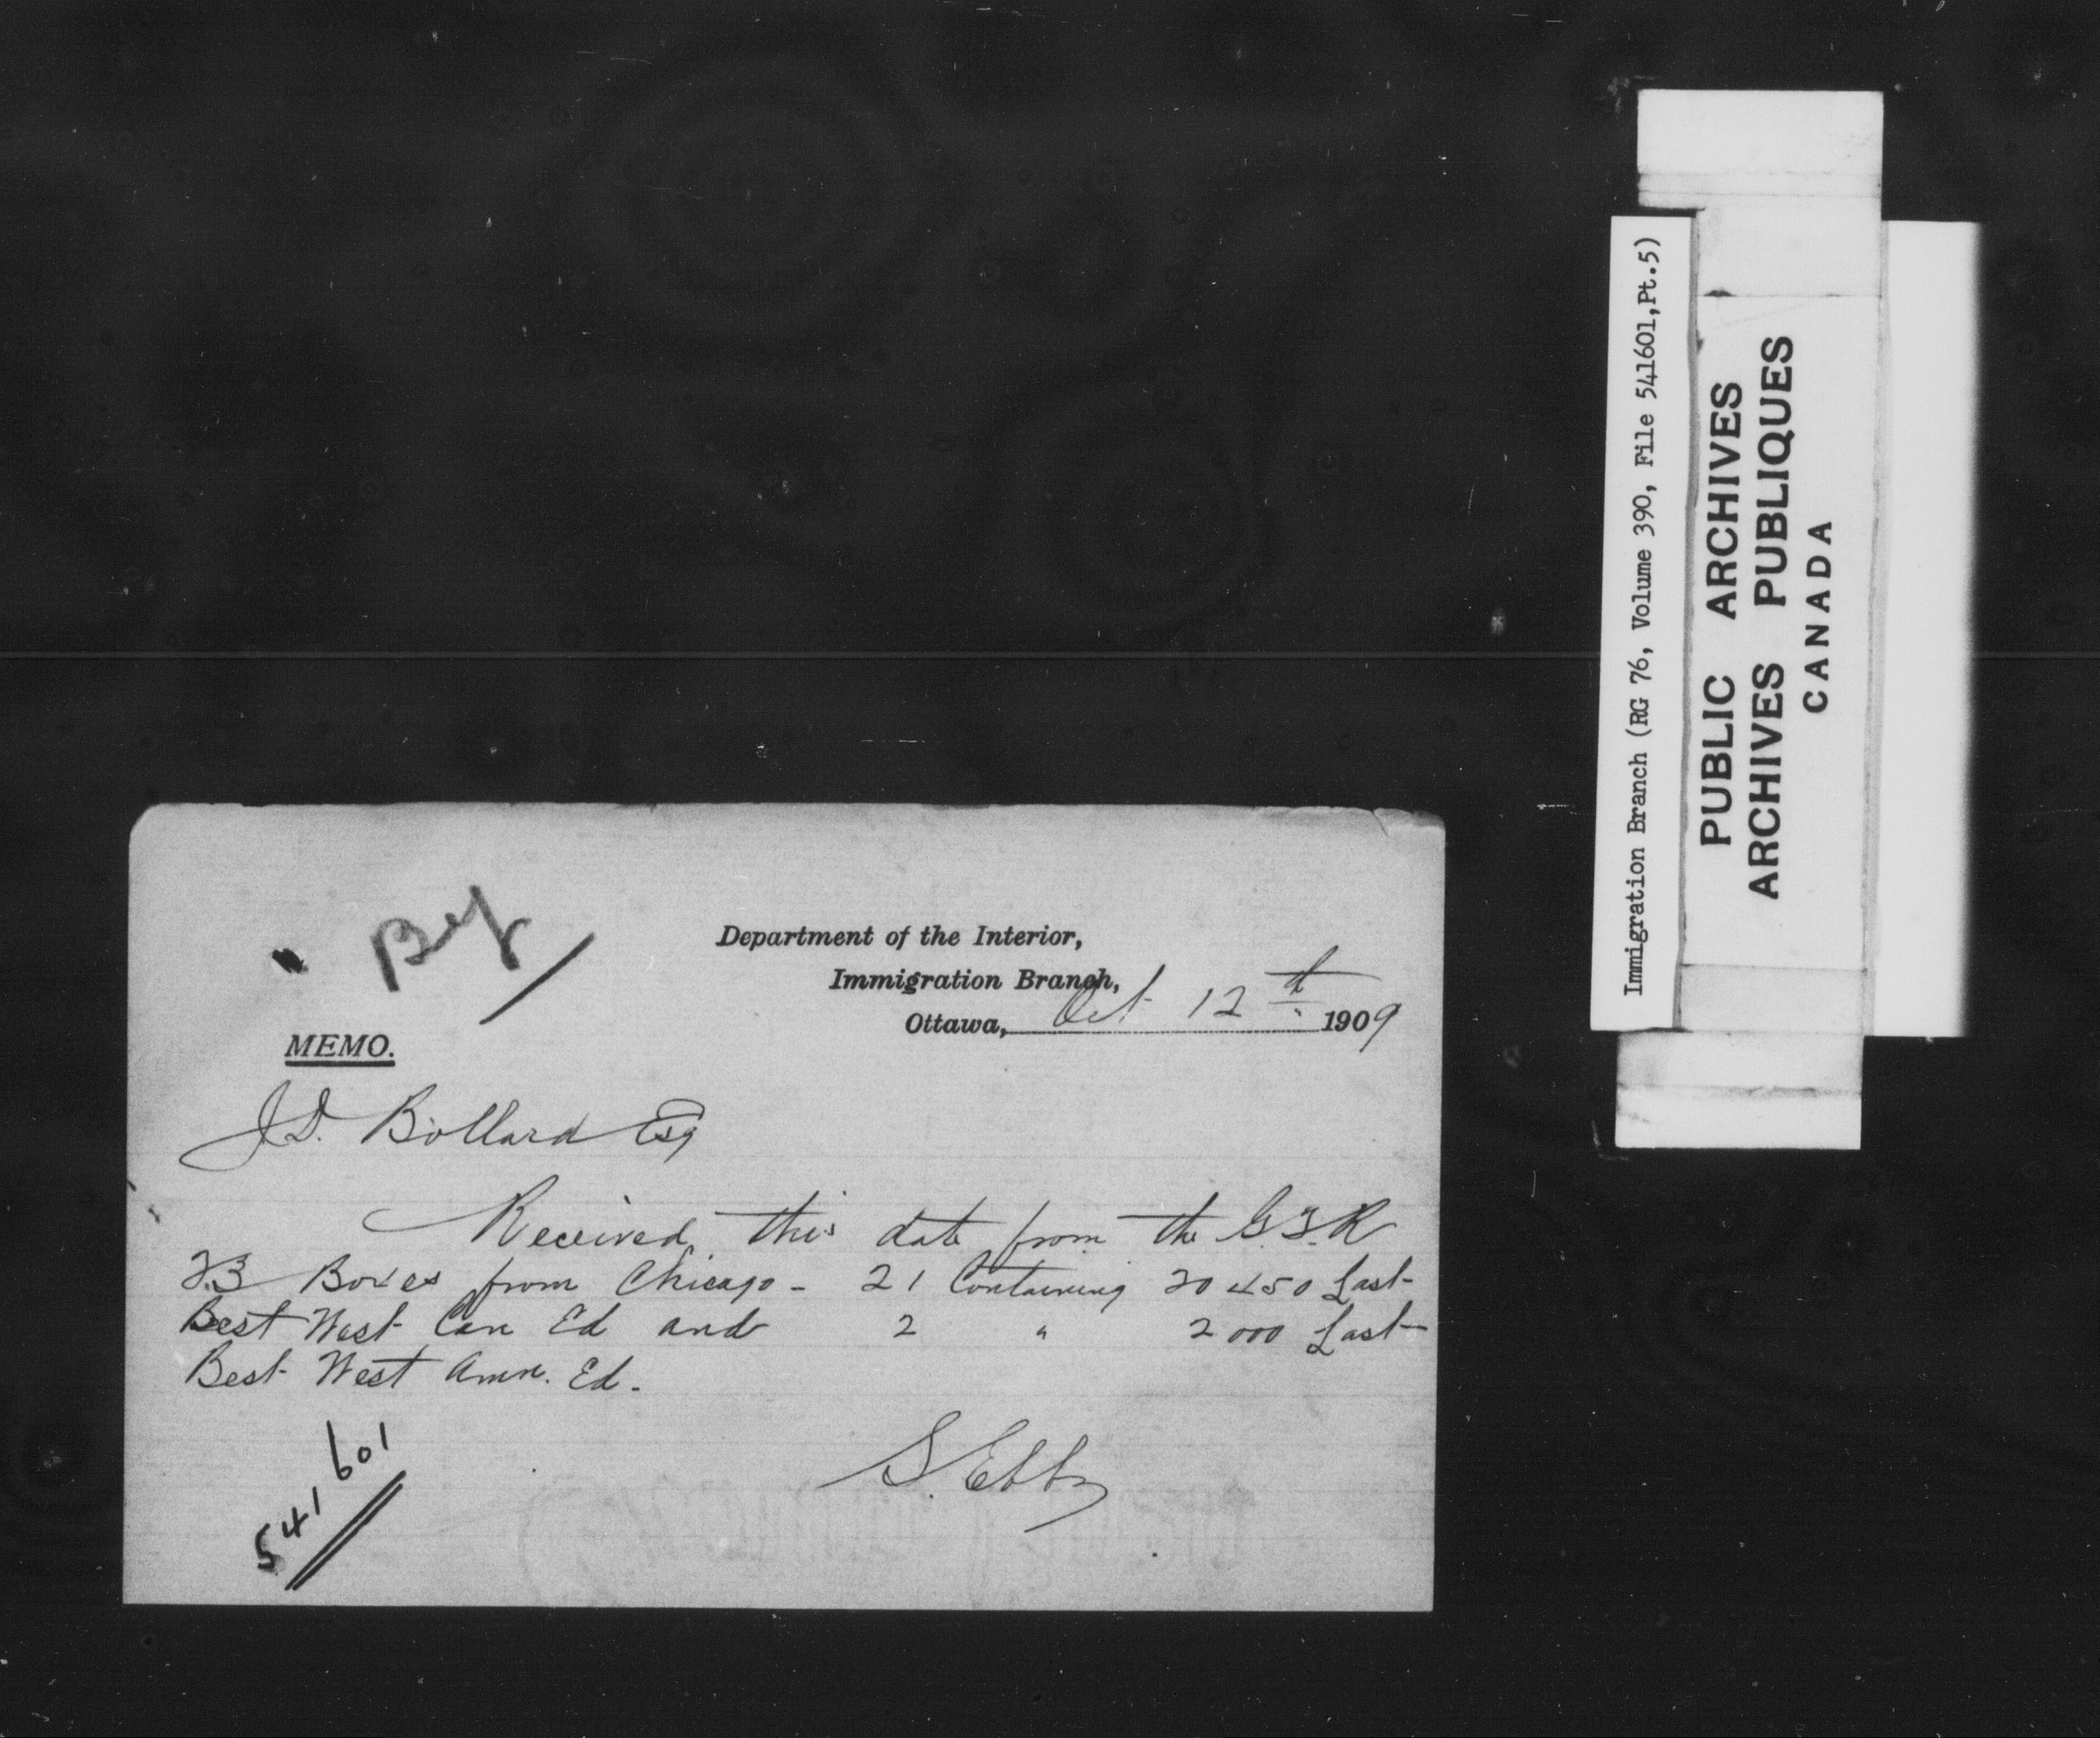 Bef
Department of the Interior,
Immigration Branch,
Ottawa, Oct 12th 1909
MEMO.
J.D. Bollard Esq
Received this date from the G.T.R
23 Boxes from Chicago - 21 Containing 20450 Last
Best West Can Ed and 2 " 2000 Last
Best West Amn. Ed.
S. Ebbs
541601
Immigration Branch (RG 76, Volume 390, File 541601,Pt.5)
PUBLIC ARCHIVES
ARCHIVES PUBLIQUES
CANADA